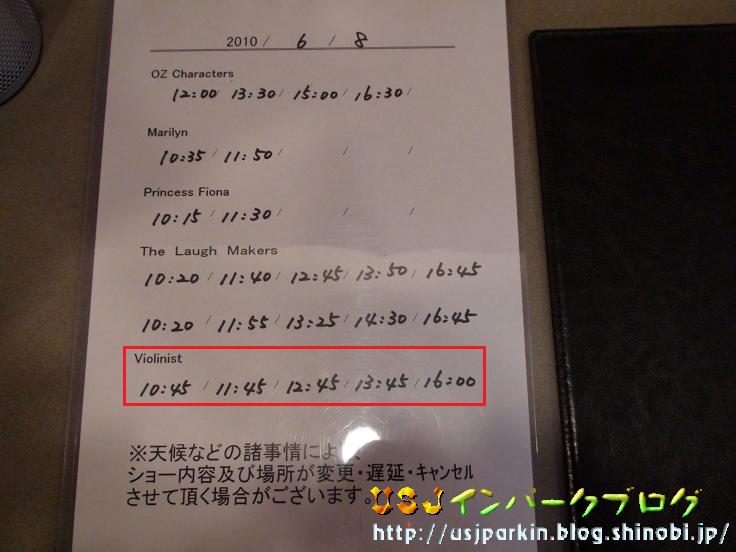 2010 / 6 / 8
OZ Characters
12:00 / 13:30 / 15:00 / 16:30 /
Marilyn
10:35 / 11:50 / / /
Princess Fiona
10:15 / 11:30 / / /
The Laugh Makers
10:20 / 11:40 / 12:45 / 13:50 / 16:45
10:20 / 11:55 / 13:25 / 14:30 / 16:45
Violinist
10:45 / 11:45 / 12:45 / 13:45 / 16:00
※天候などの諸事情により、
ショー内容及び場所が変更・遅延・キャンセル
させて頂く場合がございます。
USJインパークブログ
http://usjparkin.blog.shinobi.jp/